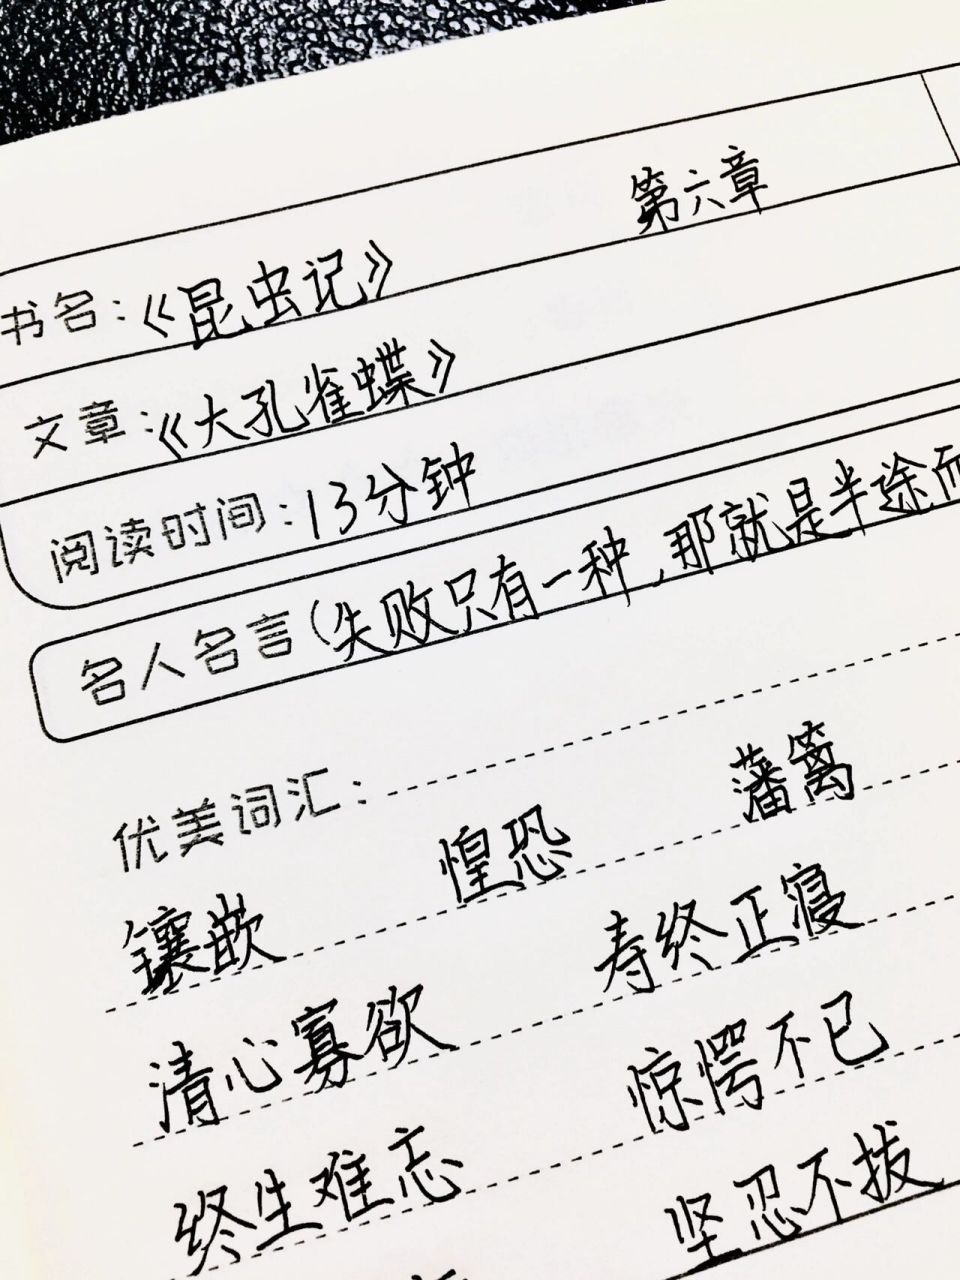 第六章
书名:《昆虫记》
文章:《大孔雀蝶》
阅读时间:13分钟
名人名言(失败只有一种,那就是半途而
优美词汇:
镶嵌 惶恐 藩篱
清心寡欲 寿终正寝
终生难忘 惊愕不已
坚忍不拔